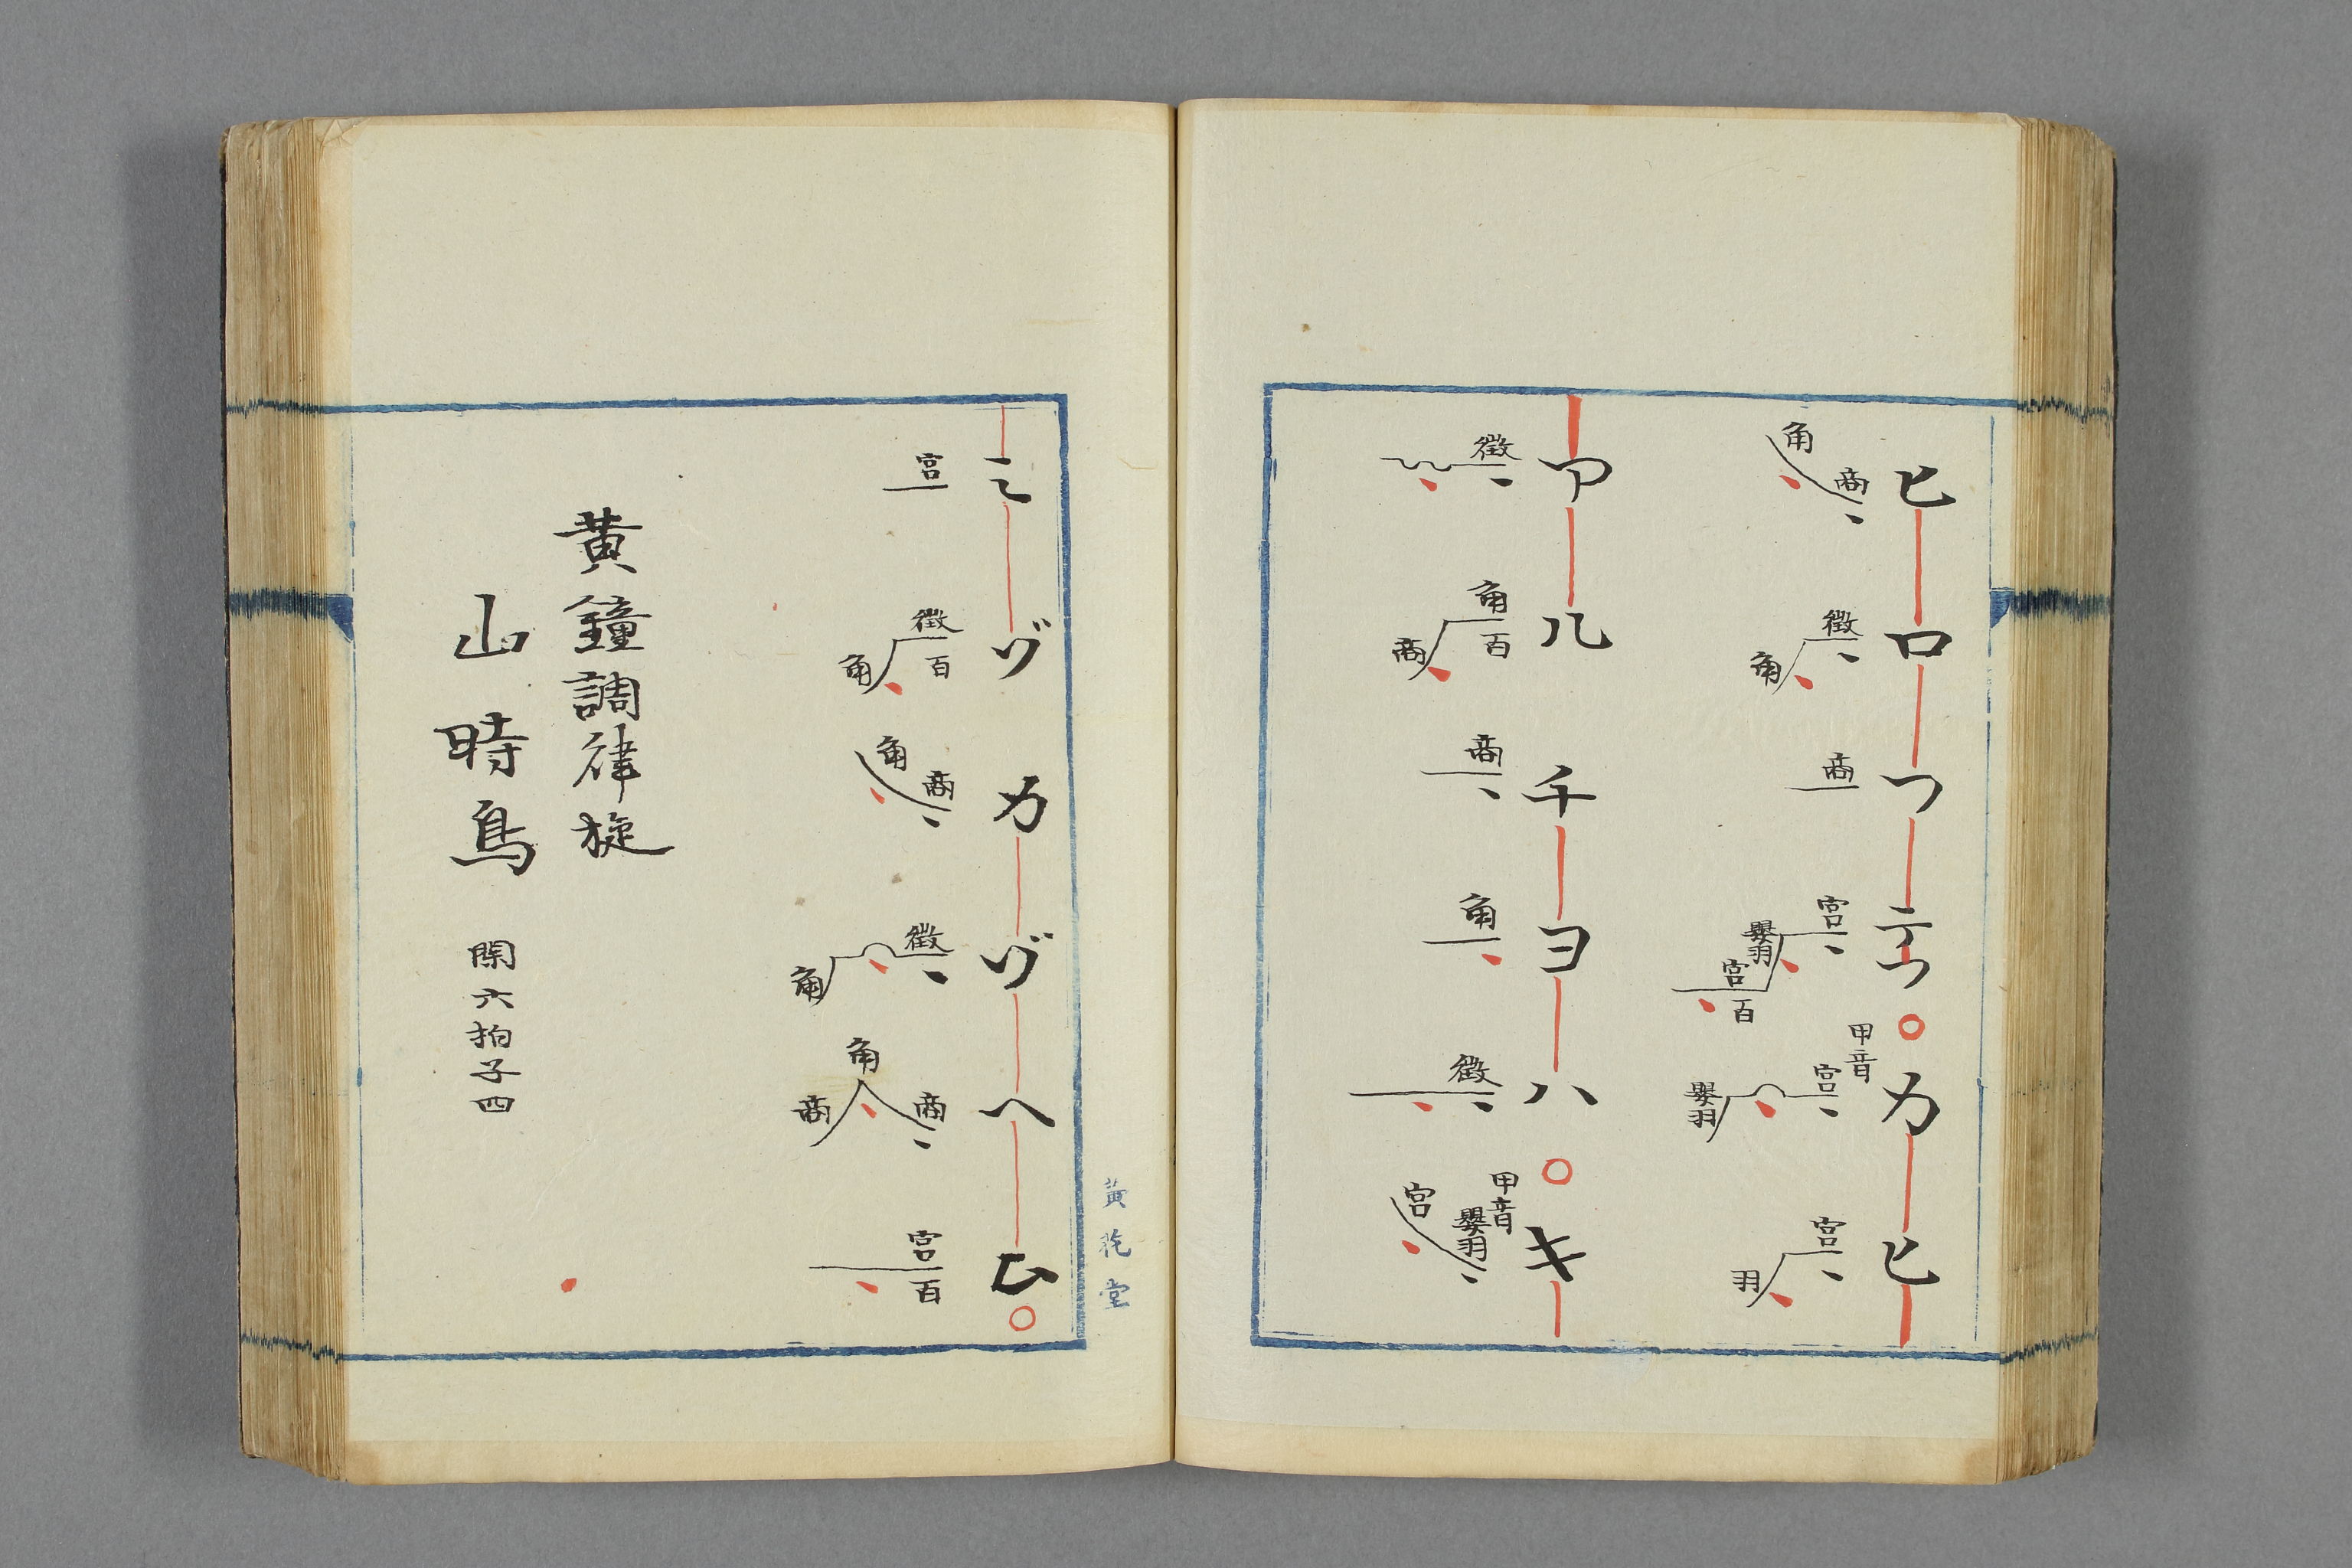 ヒロフテフ○カヒ
商角 徴角 商 宮嬰羽宮百 甲音 宮嬰羽 宮羽
アルチヨハ○キ
徴 角百商 商 角 徴 甲音 嬰羽宮
ミゾカゾヘム○
宮 徴百角 商角 徴角 商角商 宮百
黄鐘調律旋
山時鳥 六拍子四